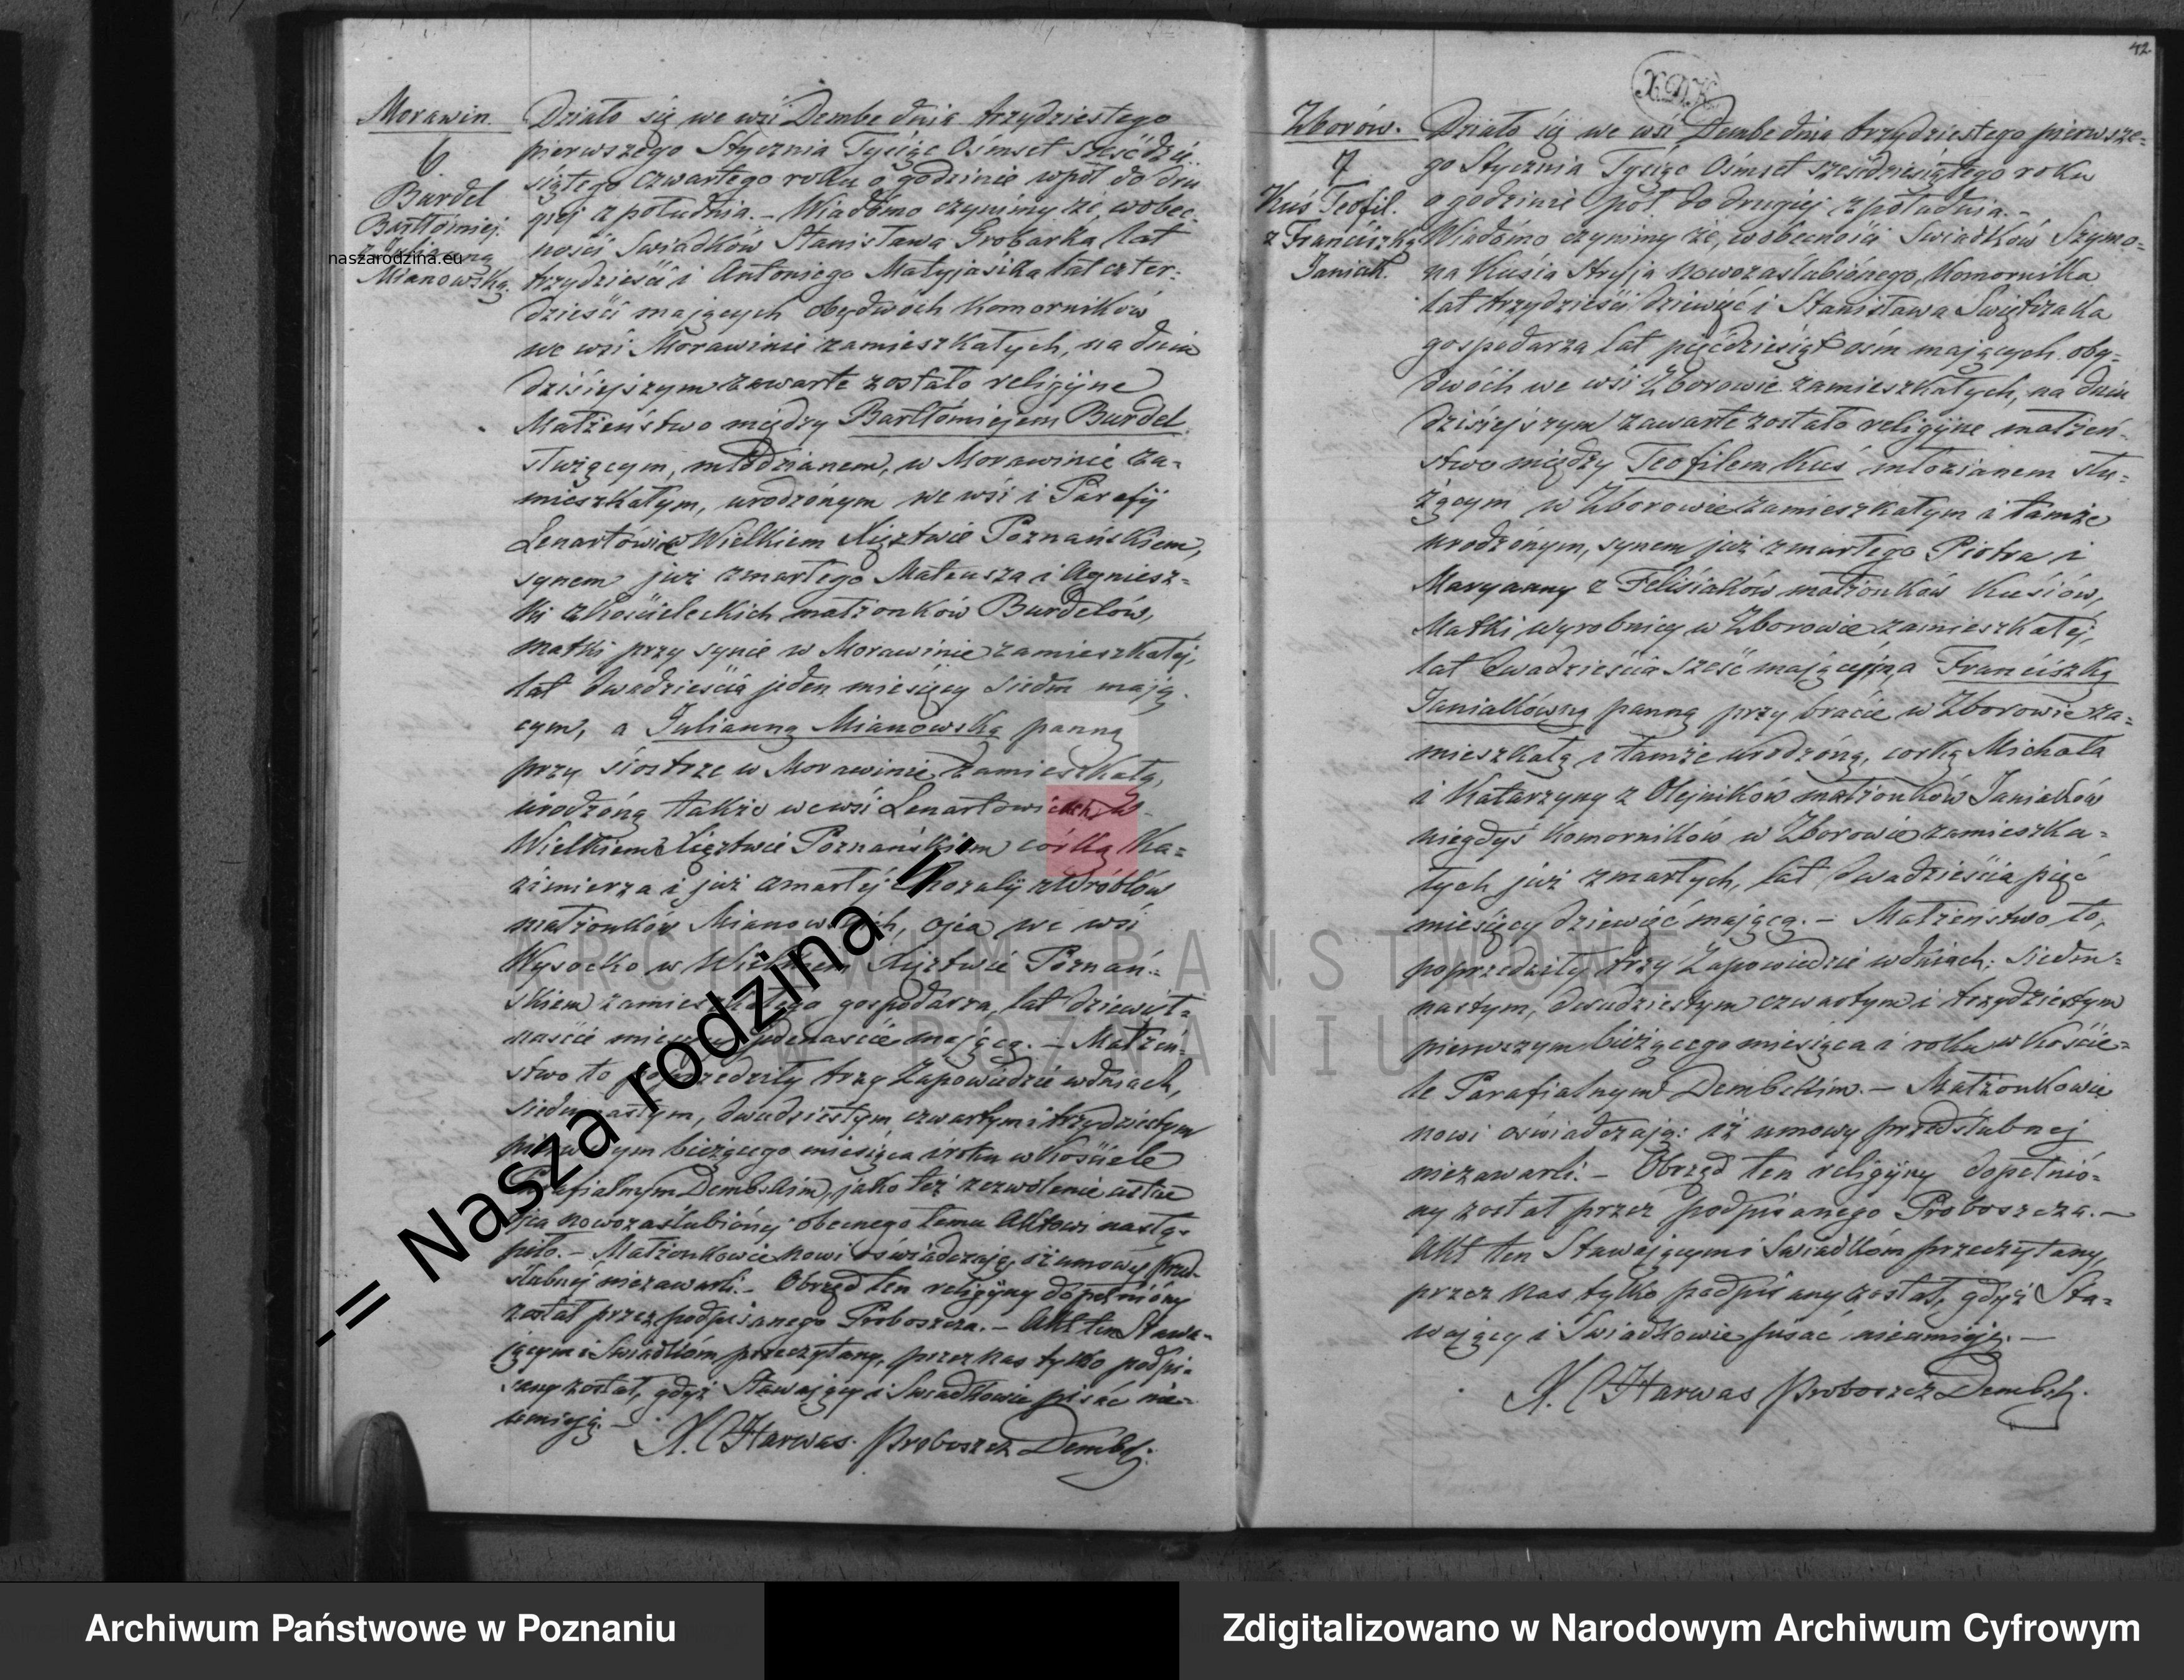 Morawin.
6
Burdel
Bartłómiej.
z Julianną
Mianowską.
naszarodzina.eu
Działo się we wsi Dembe dnia trzydziestego
pierwszego Stycznia Tysiąc Ośmset sześćdzie-
siątego czwartego roku o godzinie wpół do dru
giej z południa. – Wiadomo czynimy że, wobec-
ności Swiadków Stanisława Grobarka lat
trzydzieści i Antoniego Matyjasika lat czter-
dzieści mających obydwóch Komorników
we wsi Morawinie zamieszkałych, na dniu
dzisiejszym zawarte zostało religijne
Małżeństwo między Bartłómiejem Burdel
służącym, młodzianem, w Morawinie za-
mieszkałym, urodzónym we wsi i Parafij
Lenartówice Wielkiem Xięztwie Poznańskiem,
synem już zmarłego Mateusza i Agniesz-
ki z Kościeleckich małżonków Burdelów,
matki przy synie w Morawinie zamieszkałej,
lat dwadzieścia jeden miesięcy siedm mają-
cym, a Julianną Mianowską panną
przy siostrze w Morawinie zamieszkałą,
urodzóną także we wsi Lenartowicach w
Wielkiem Xięztwie Poznańskiem córką Ka-
zimierza i już zmarłéj Rozalij z Wróblów
małżonków Mianowskich, ojca we wsi
Wysocko w Wielkiem Xięztwie Poznań-
skiem zamieszkałego gospodarza, lat dziewięt-
naście miesięcy jedenaście mającą. – Małżeń-
stwo to poprzedziły trzy Zapowiedzie w dniach,
siedmnastym, dwudziestym czwartym i trzydziestym
pierwszym bieżącego miesiąca i roku w Kościele
Parafialnym Dembskim, jako też zezwolenie ustne
Ojca nowozaślubionej obecnego temu Aktowi nastą-
piło. – Małżonkowie nowi oświadczają, iż umowy przed-
ślubnéj niezawarli. – Obrzęd ten religijny dopełniony
został przez podpisanego Proboszcza. – Akt ten Stawa-
jącym i Świadkom przeczytany, przez nas tylko podpi-
sany został, gdyż Stawający i Świadkowie pisać nie-
umieją. –
X. C Harwas. Proboszcz Dembs:
42
X.D.K.
Zborów.
7
Kuś Teofil.
z Franciszką
Janiak.
Działo się we wsi Dembe dnia trzydziestego pierwsze-
go Stycznia Tysiąc Ośmset sześćdziesiątego roku
o godzinie pół do drugiej z południa. –
Wiadomo czynimy że, w obecności Swiadków Szymo-
na Kusia stryja nowozaślubiónego, Komornika
lat trzydzieści dziewięć i Stanisława Swiętczaka
gospodarza lat pięćdziesiąt ośm mających oby-
dwóch we wsi Zborowie zamieszkałych, na dniu
dzisiejszym zawarte zostało religijne małżeń-
stwo między Teofilem Kuś młozianem słu-
żącym w Zborowie zamieszkałym i tamże
urodzónym, synem już zmarłego Piotra i
Maryanny z Felisiaków małżonków Kusiów,
Matki wyrobnicy w Zborowie zamieszkałéj,
lat dwadzieścia sześć mającym, a Franciszką
Janiakówną panną przy bracie w Zborowie za-
mieszkałą i tamże urodzóną, córką Michała
i Katarzyny z Olejników małżonków Janiaków
niegdyś Komorników w Zborowie zamieszka-
łych już zmarłych, lat dwadzieścia pięć
miesięcy dziewięć mającą. – Małżeństwo to,
poprzedziły trzy Zapowiedzie w dniach; siedm-
nastym, dwudziestym czwartym i trzydziestym
pierwszym bieżącego miesiąca i roku w Koście-
le Parafialnym Dembskim. – Małżonkowie
nowi oświadczają: iż umowy przedślubnej
niezawarli. – Obrzęd ten religijny dopełnió-
ny został przez podpisanego Proboszcza. –
Akt ten Stawającym i Swiadkóm przeczytany,
przez nas tylko podpisany został, gdyż Sta-
wający i Swiadkowie pisać nieumieją. –
X. C Harwas Proboszcz Dembs:
ARCHIWUM PAŃSTWOWE
W POZNANIU
-= Nasza rodzina =-
Archiwum Państwowe w Poznaniu
Zdigitalizowano w Narodowym Archiwum Cyfrowym